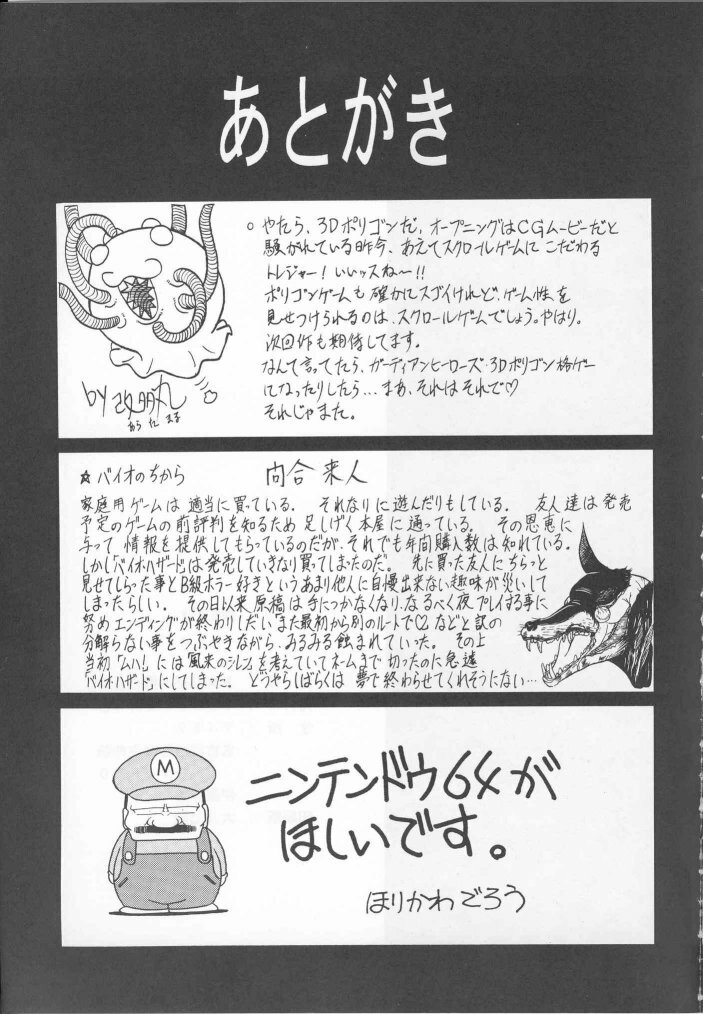 あとがき
。やたら、3Dポリゴンだ、オープニングはCGムービーだと
騒がれている昨今、あえてスクロールゲームにこだわる
トレジャー！いいッスね〜!!
ポリゴンゲームも確かにスゴイけれど、ゲーム性を
見せつけられるのは、スクロールゲームでしょう。やはり。
次回作も期待してます。
なんて言ってたら、ガーディアンヒーローズ・3Dポリゴン格ゲー
になったりしたら…まあ、それはそれで♡
それじゃまた。
by
☆バイオのちから 向合来人
家庭用ゲームは適当に買っている。それなりに遊んだりもしている。友人達は発売
予定のゲームの前評判を知るため足しげく本屋に通っている。その恩恵に
与って情報を提供してもらっているのだが、それでも年間購入数は知れている。
しかし「バイオハザード」は発売していきなり買ってしまったのだ。先に買った友人にちらっと
見せてしらった事とB級ホラー好きというあまり他人に自慢出来ない趣味が災いして
しまったらしい。その日以来原稿は手につかなくなり、なるべく夜プレイする事に
努めエンディングが終わりしだい「また最初から別のルートで〇2」などと訳の
分解らない事をつぶやきながら、みるみる蝕まれていった。その上
当初「ムハ！」には「風来のシレン」を考えていてネームまで切ったのに急遽
「バイオハザード」にしてしまった。どうやらしばらくは夢で終わらせてくれそうにない…
M
ニンテンドウ64が
ほしいです。
ほりかわごろう